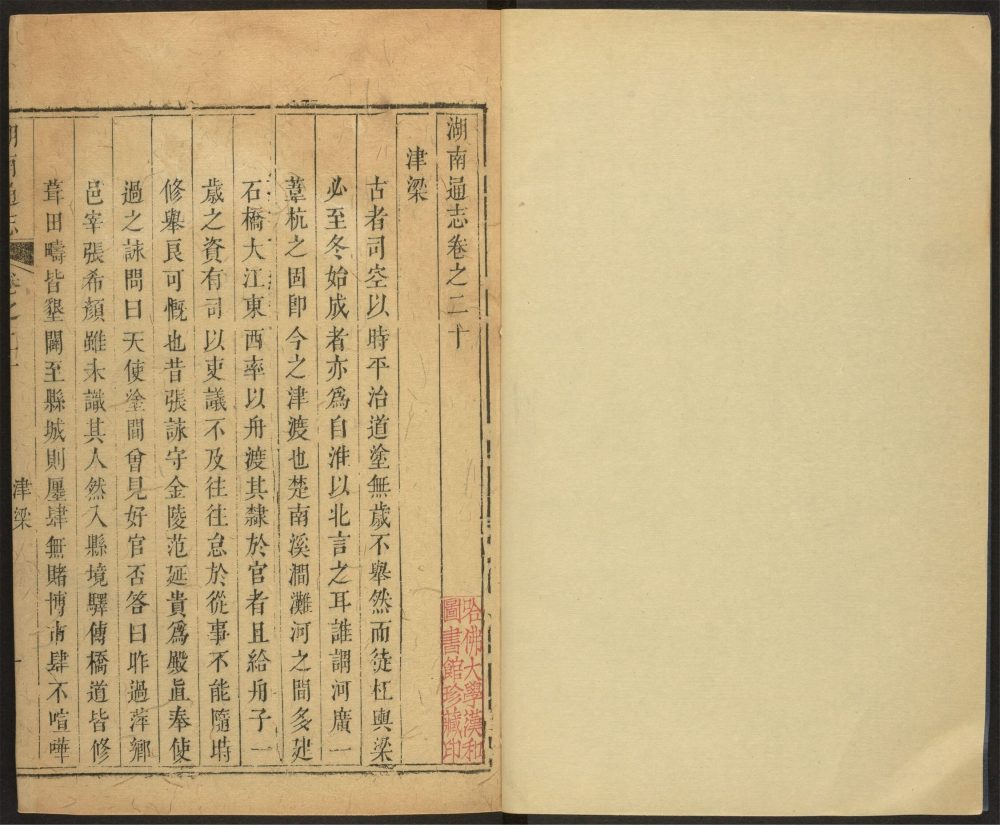 湖南通志卷之二十
津梁
古者司空以時平治道塗無歲不舉然而徒杠輿梁
必至冬始成者亦爲自淮以北言之耳誰謂河廣一
葦杭之固卽今之津渡也楚南溪澗灘河之間多建
石橋大江東西率以舟渡其隸於官者且給舟子一
歲之資有司以吏議不及往往怠於從事不能隨時
修舉良可慨也昔張詠守金陵范延貴爲殿直奉使
過之詠問曰天使塗間曾見好官否答曰昨過萍鄉
邑宰張希顏雖未識其人然入縣境驛傳橋道皆修
葺田疇皆墾闢至縣城則廛肆無賭博市肆不喧嘩
湖南通志
卷之二十
津梁
一
哈佛大學漢和
圖書館珍藏印